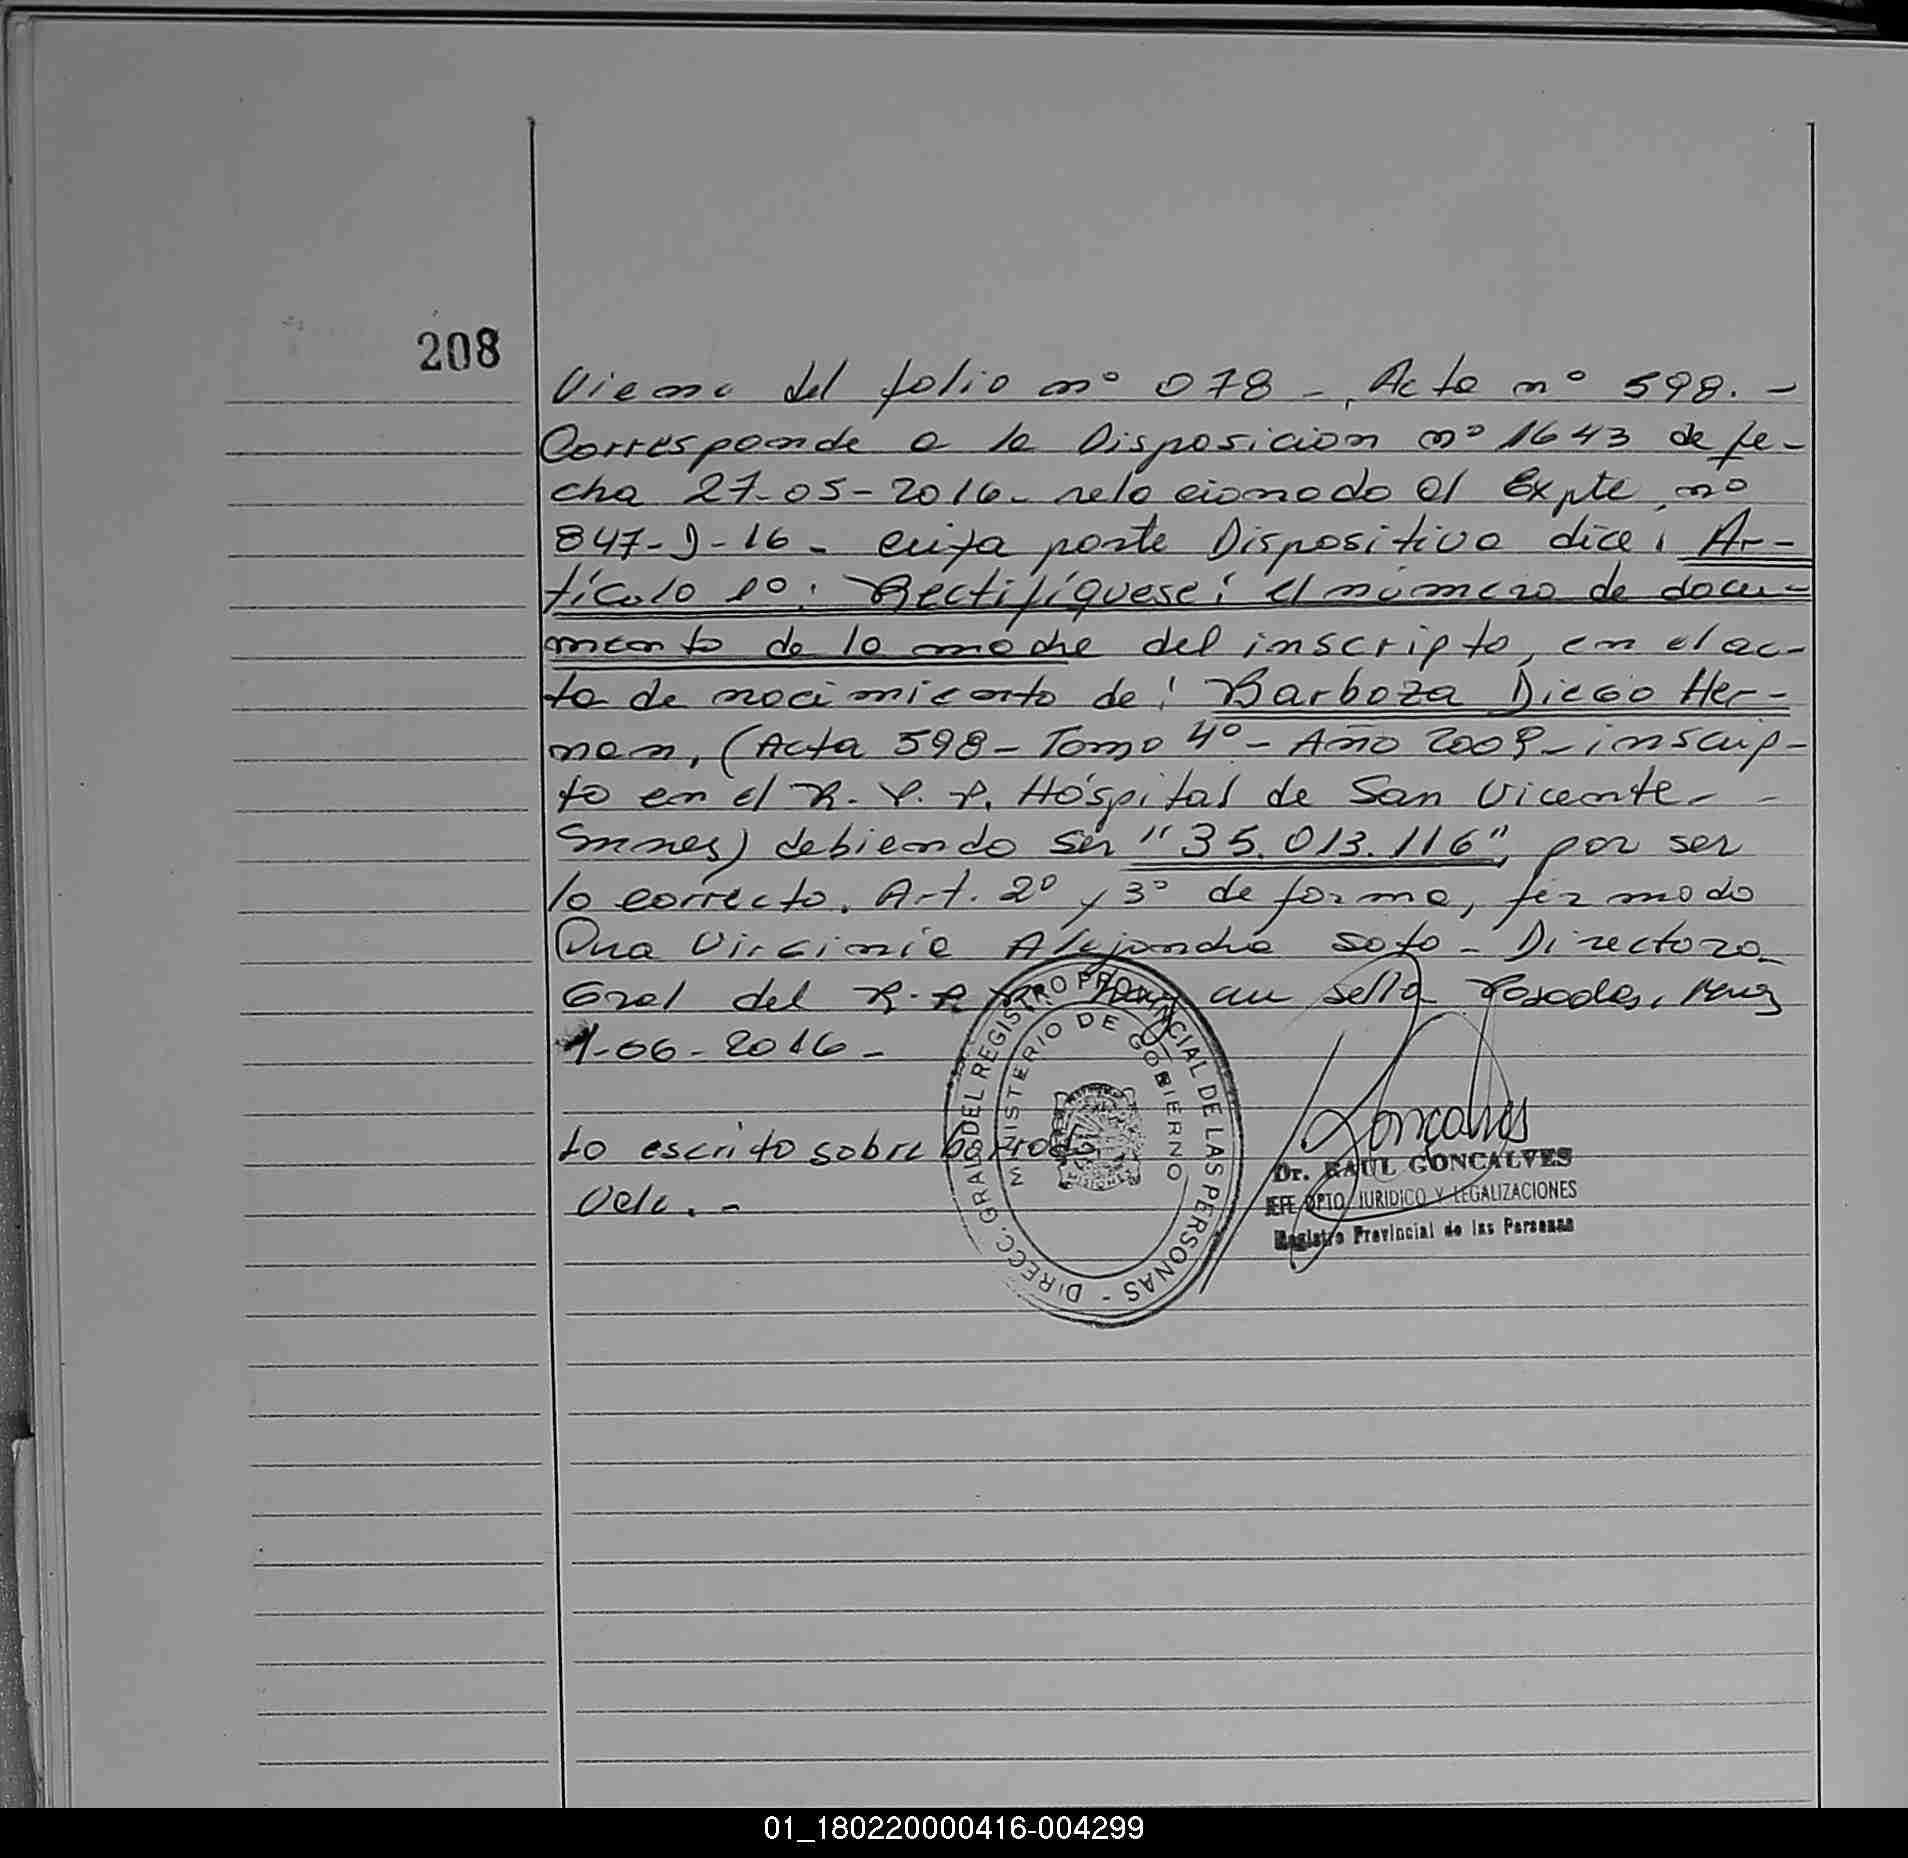 208
Viene del folio nº 078 - Acta nº 598. -
Corresponde a la Disposicion nº 1643 de fe-
cha 27-05-2016- relacionado al Expte nº
847-J-16- cuya parte Dispositiva dice: Ar-
tículo 1º: Rectifíquese: el número de docu-
mento de la madre del inscripto, en el ac-
ta de nacimiento de: Barboza Diego Her-
nan, (Acta 598- Tomo 4º- Año 2009- inscrip-
to en el R.P.P. Hospital de San Vicente- -
Smnes) debiendo ser "35.013.116", por ser
lo correcto. Art. 2º y 3º de forma, firmado
Dra Virginia Alejandra Soto - Directora
Gral del R.P.P. hay un sello Posadas, Mnes
1-06-2016-
Lo escrito sobre borrado
Vale. -
DIRECC. GRAL DEL REGISTRO PROVINCIAL DE LAS PERSONAS -
MINISTERIO DE GOBIERNO
MISIONES
Goncalves
Dr. RAUL GONCALVES
JEFE DPTO JURIDICO Y LEGALIZACIONES
Registro Provincial de las Personas
01_180220000416-004299